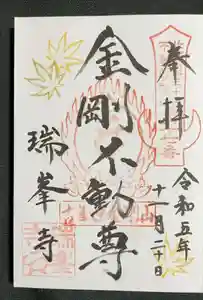 奉拝
令和五年
十一月二十日
金剛不動尊
瑞峯寺